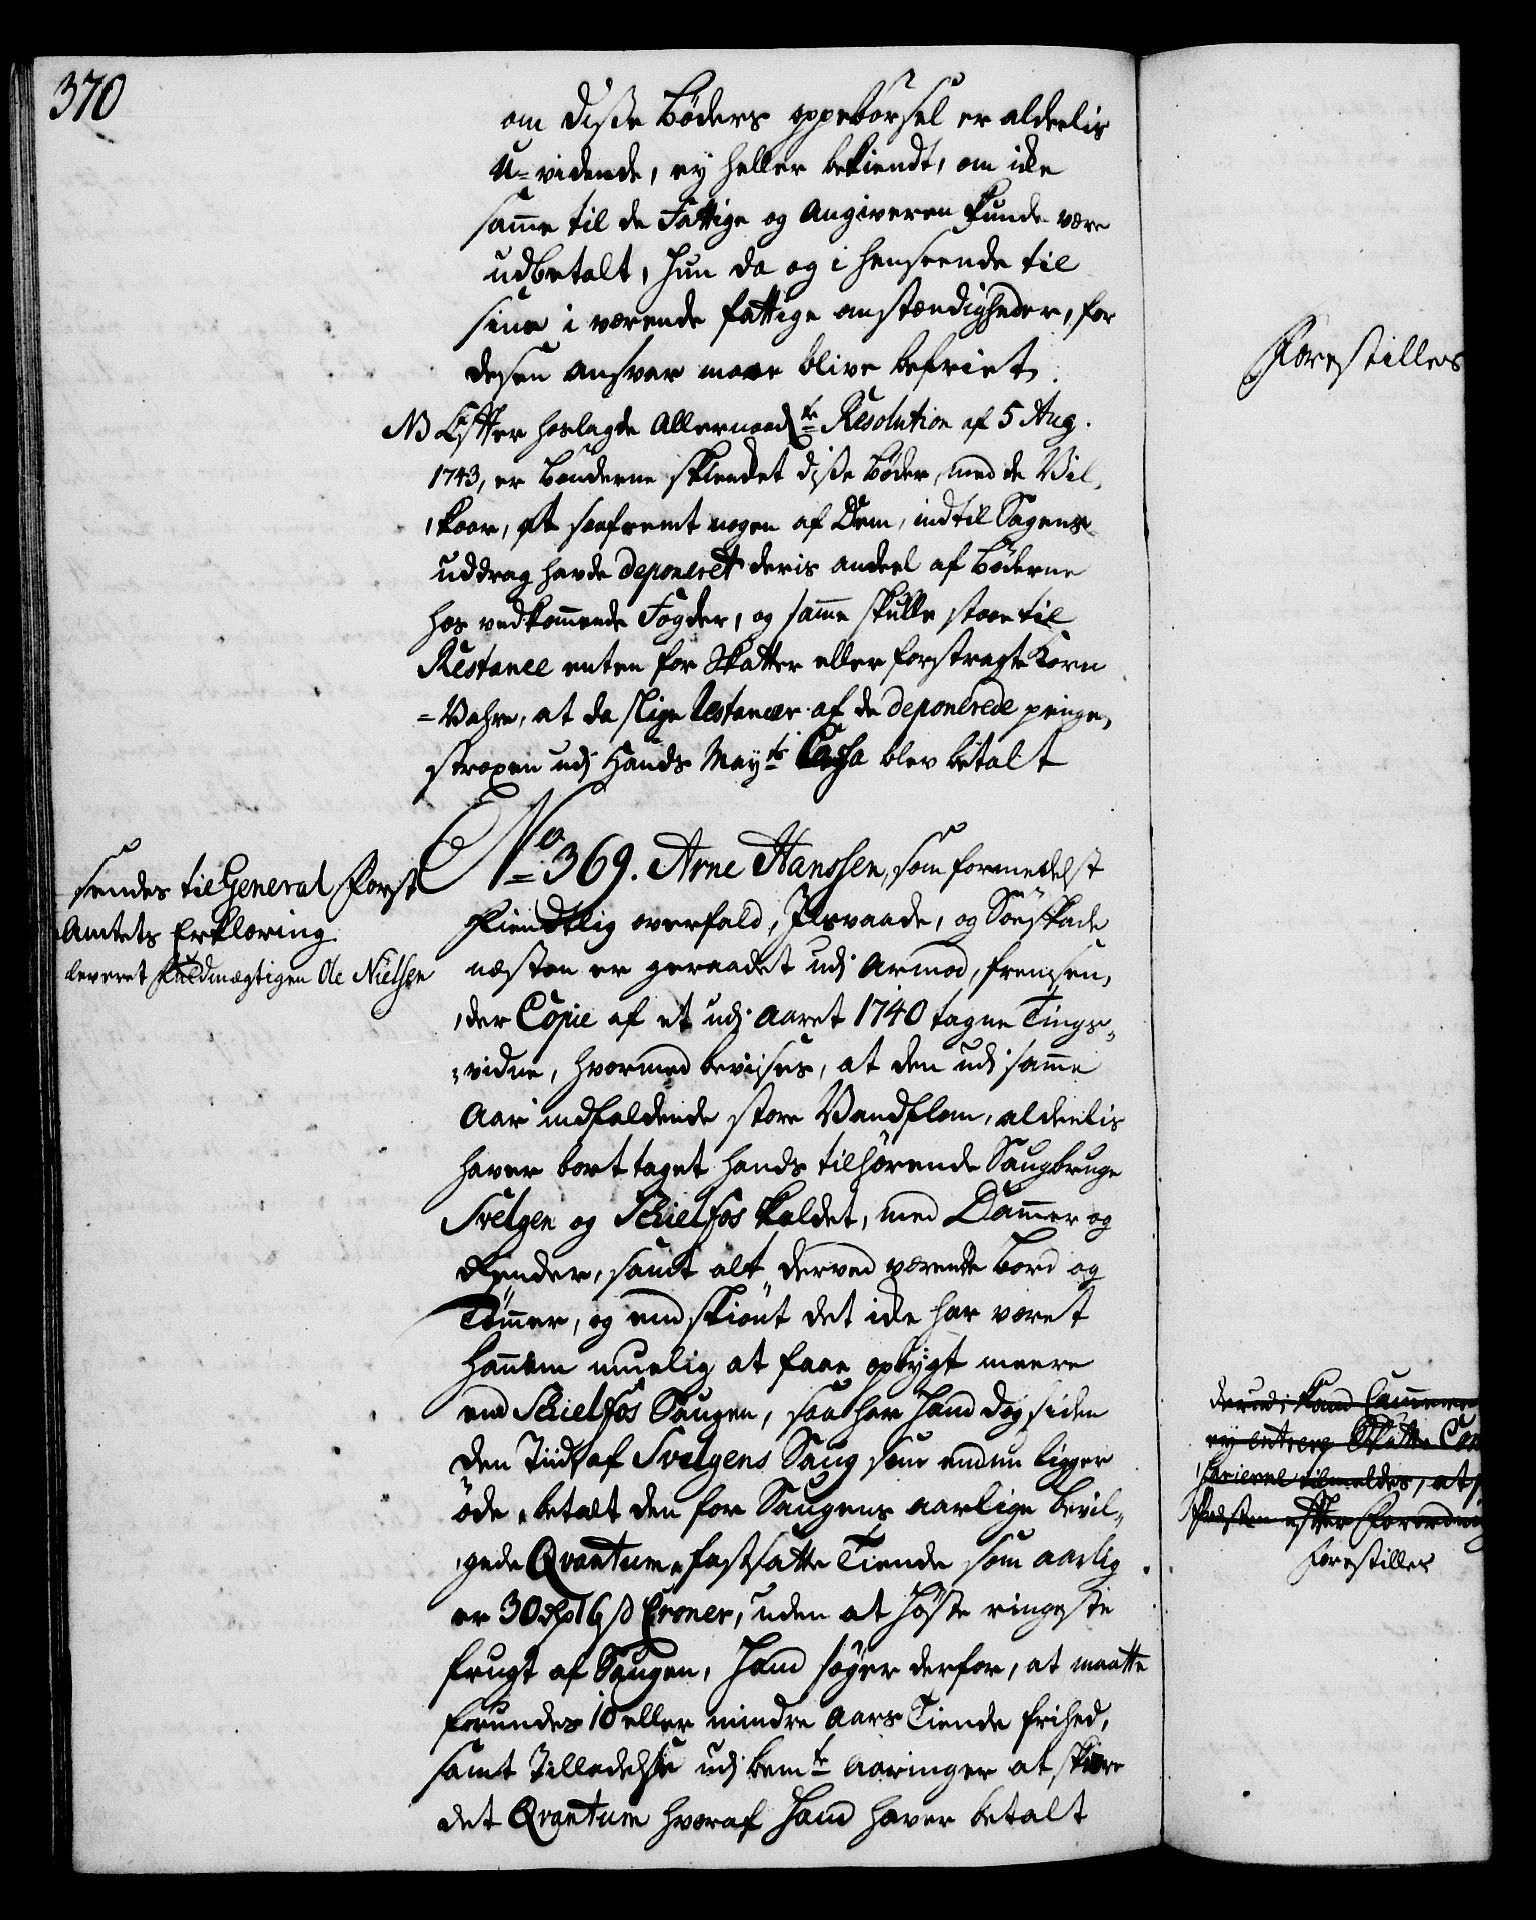 370
om disse Bøders oppebørsel er aldeelis
U-vidende, ey heller bekiendt, om icke
samme til de Fattige og Angiveren kunde være
udbetalt, hun da og i henseende til
sine i værende fattige omstændigheder, for
desen Ansvar maae blive befriet.
NB Efter hoslagde Allernaadste Resolution af 5 Aug.
1743, er Bønderne skienket disse Bøder, med de Vil-
kaar, at saafremt nogen af Dem, indtil Sagens
uddrag havde deponeret deris andeel af Bøderne
hos vedkommende Fogder, og samme skulle staae til
Restance enten for Skatter eller forstragt Korn
-Vahre, at da slige Restancer af de deponerede penge,
straxen udj Hands Mayts Cassa blev betalt
sendes til General Forst
Amtets Erklæring
leveret Fuldmægtigen Ole Nielsen
No 369. Arne Hanssen, som formedelst
Fiendtlig overfald, Ilsvaade, og Søeskade
næsten er geraadet udj Armod, fremsen-
der Copie af et udj Aaret 1740 tagne Tings-
vidne, hvormed bevises, at den udj samme
Aar indfaldende store Vandflom, aldeelis
haver borttaget hands tilhørende Saugbruge
Svelgen og Schielfos kaldet, med Dammer og
Render, samt alt derved værende Bord og
Tømmer, og endskiønt det icke har været
Hannem muelig at faae opbygt meere
end Schielfos Saugen, saa har hand dog siden
den Tiid af Svelgens Saug som endnu ligger
øde, betalt den for Saugens aarlige bevil-
gede Qvantum fastsatte Tiende som aarlig
er 30 rdr 16 s Croner, uden at høste ringeste
frugt af Saugen, Hand søger derfor, at maatte
forundes 10 eller mindre Aars Tiende frihed,
samt Tilladelse udj bemte Aaringer at skiære
det Qvantum hvoraf Hand haver betalt
Forestilles
derudj kand Cammere
ey entreg Skatte Com
tilmeldes, at
efter Forordni
forestilles